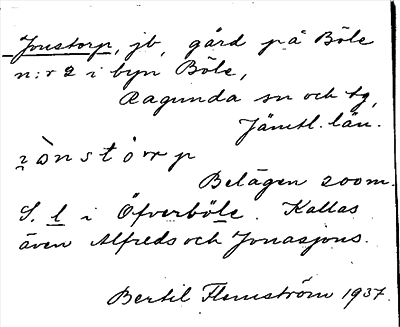 Jonstorp, jb, gård på Böle
n:r 2 i byn Böle,
Ragunda sn och tg,
Jämtl. län.
Belägen 200 m.
S. l i Öfverböle. Kallas
även Alfreds och Jonasjons.
Bertil Flemström 1937.